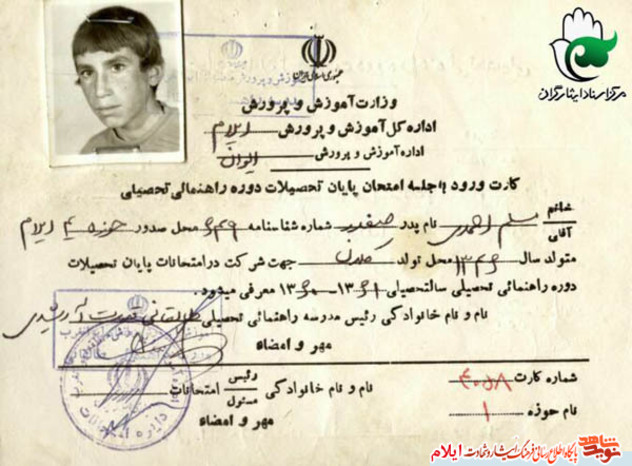 جمهوری اسلامی ایران
مرکز اسناد ایثارگران
وزارت آموزش و پرورش
اداره کل آموزش و پرورش ایلام
اداره آموزش و پرورش ایوان
کارت ورود به جلسه امتحان پایان تحصیلات دوره راهنمائی تحصیلی
خانم
آقای مسلم احمدی نام پدر صیفور شماره شناسنامه ۶۴۹ محل صدور حوزه ایلام
متولد سال ۱۳۴۶ محل تولد جهت شرکت در امتحانات پایان تحصیلات
دوره راهنمائی تحصیلی سالتحصیلی ۱۳۶۱-۱۳۶۰ معرفی میشود.
نام و نام خانوادگی رئیس مدرسه راهنمائی تحصیلی طالقانی
مهر و امضاء
شماره کارت ۴۰۵۸
نام و نام خانوادگی رئیس مسئول امتحانات
نام حوزه ۱
مهر و امضاء
دایره امتحانات
نوید شاهد
پایگاه اطلاع رسانی فرهنگ ایثار و شهادت ایلام